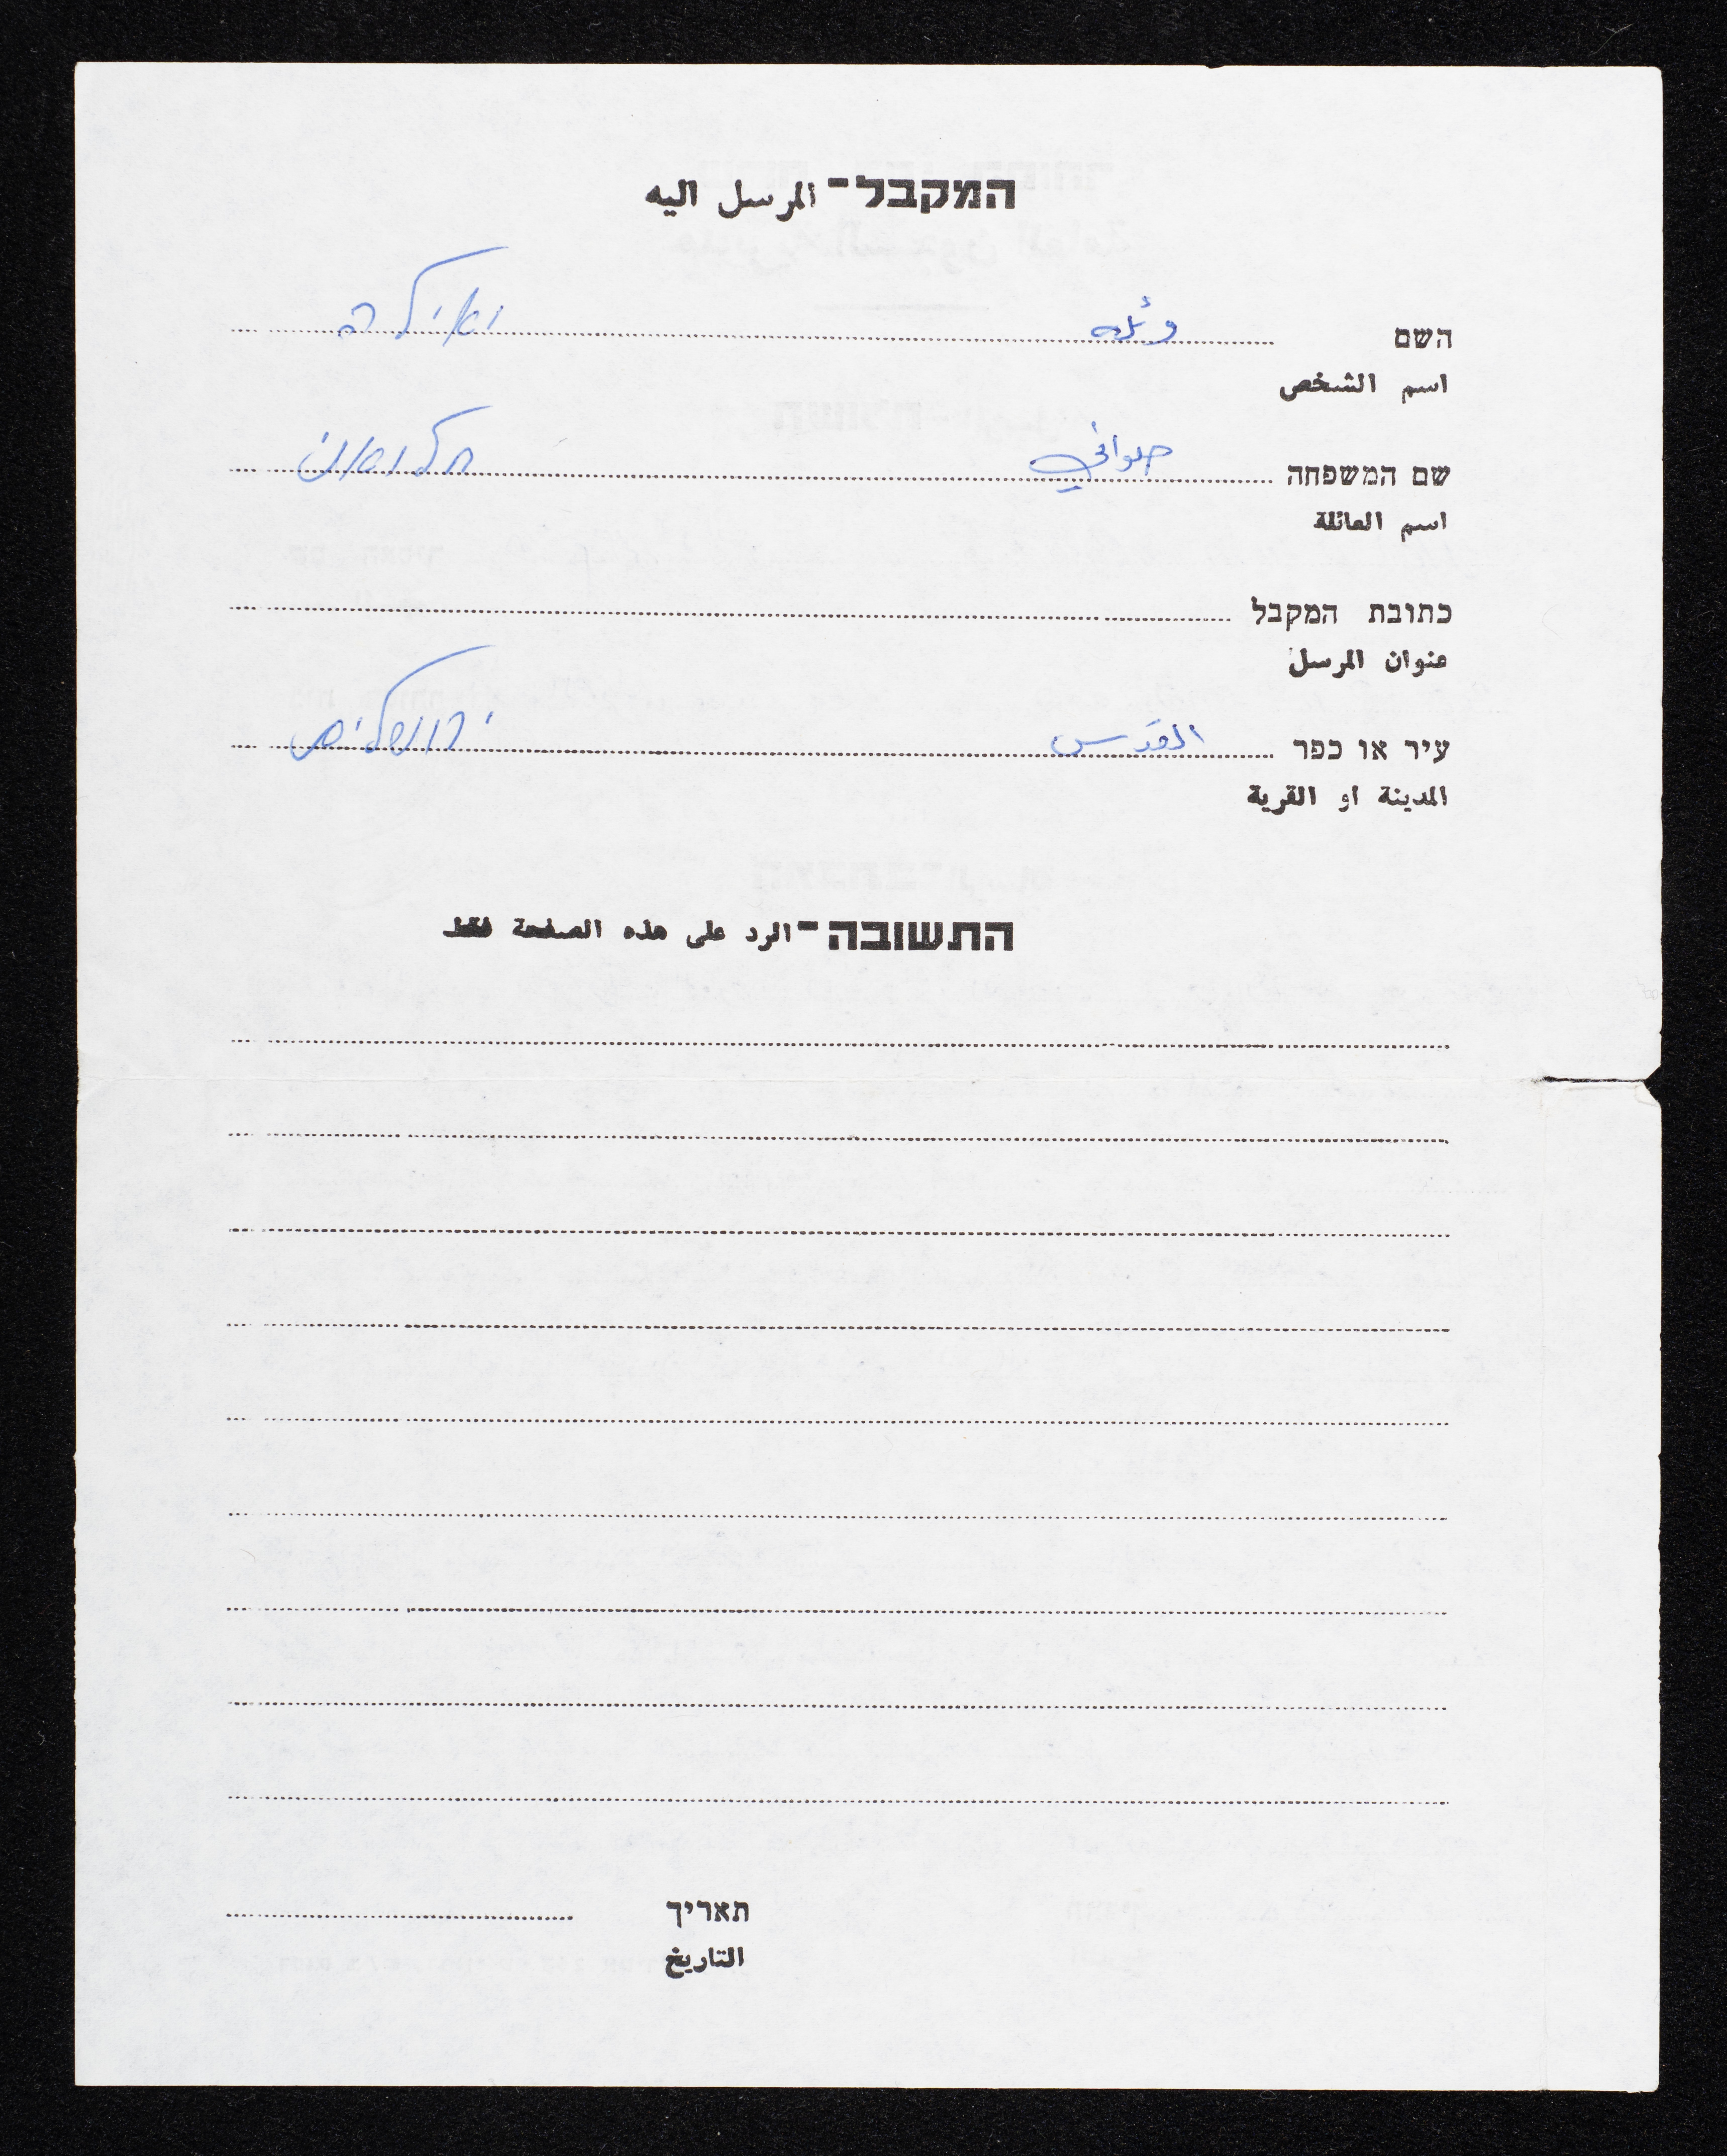 המקבל - المرسل اليه
השם وئله ואילה
اسم الشخص
שם המשפחה حلواني חלואני
اسم العائلة
כתובת המקבל
عنوان المرسل
עיר או כפר القدس ירושלים
المدينة او القرية
התשובה - الرد على هذه الصفحة فقط
תאריך
التاريخ